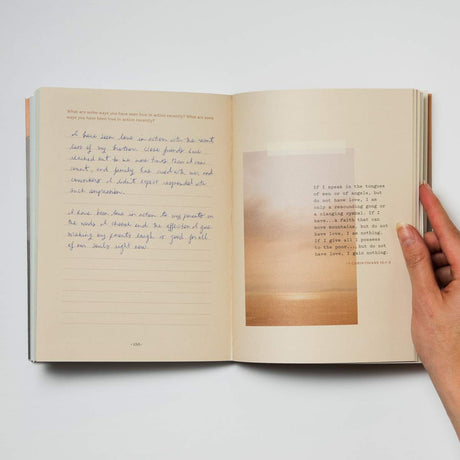 What are some ways you have seen love in action recently? What are some
ways you have been love in action recently?
I have seen love in action with the recent
loss of my brother. Close friends have
reached out to me more times than I can
count, and family has cried with me, and
coworkers I didn't expect responded with
such compassion.
I have been love in action to my parents in
the words I choose and the affection I give.
Making my parents laugh is good for all
of our souls right now.
If I speak in the tongues
of men or of angels, but
do not have love, I am
only a resounding gong or
a clanging cymbal. If I
have...a faith that can
move mountains, but do not
have love, I am nothing.
If I give all I possess
to the poor...but do not
have love, I gain nothing.